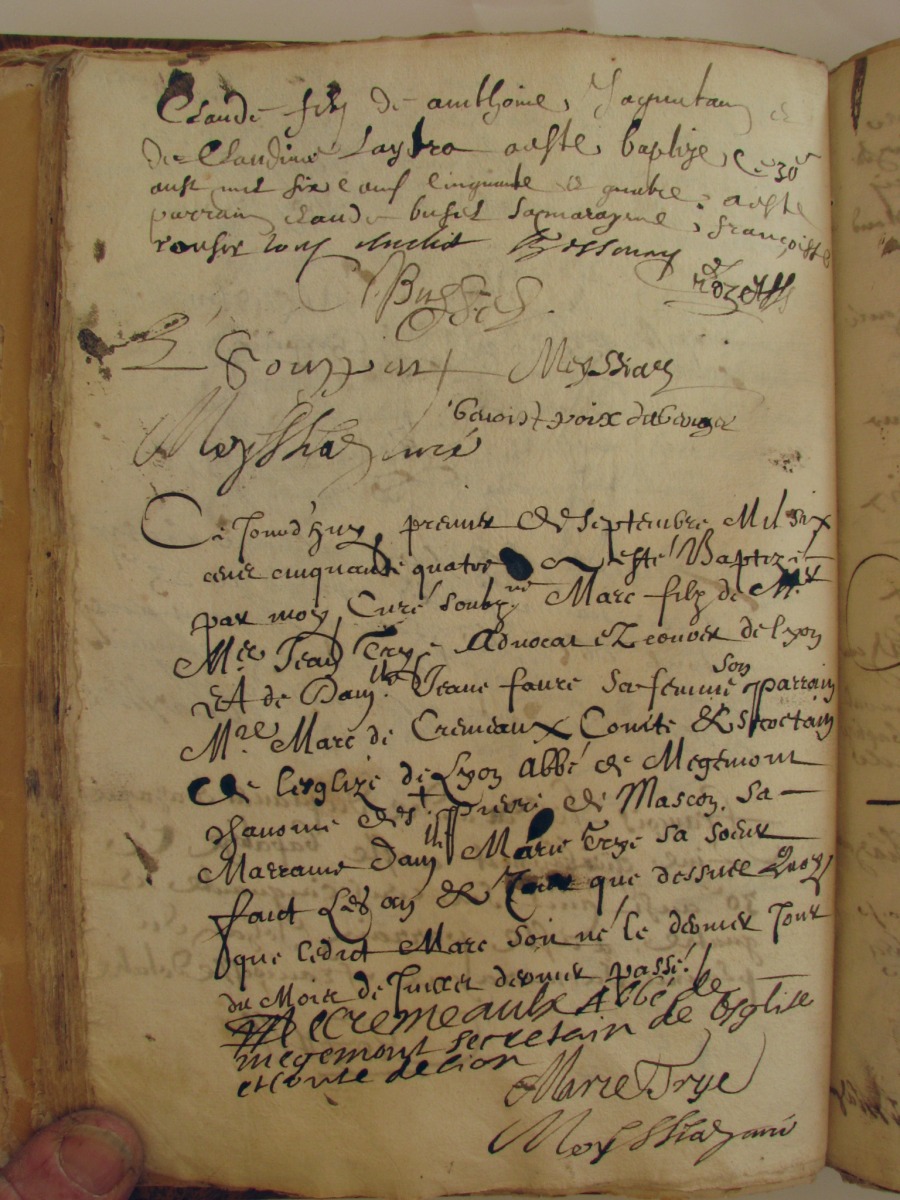 Claude filz de anthoine
de Claudine Laydra a esté baptizé ce 30
aust mil six cens cinquante & quatre, a esté
parrain claude buset sa marayne, françoise
Busset
Meyssiat
Benoist voix
Meyssiat curé
Ce Jourd'huy premier de septembre Mil six
cent cinquante quatre a esté Baptizé
par moy Curé soubzné Marc filz de Mr
Mre Jean Trye Advocat ez courtz de Lyon
Et de Damlle Jeane faure sa femme son parrain
Mre Marc de Cremeaux Comte & secretain
de lesglize de Lyon Abbé de Megemont
chanoine de St Pierre de Mascon, sa
Marraine Damlle Marie Trye sa soeur
faict Les an & Jour que dessus
que ledict Marc soit né le dernier Jour
du Mois de Juillet dernier passé
M de Cremeaulx Abbé de
megemont secretain de lesglise
et conte de lion
Marie Trye
Meyssiat curé